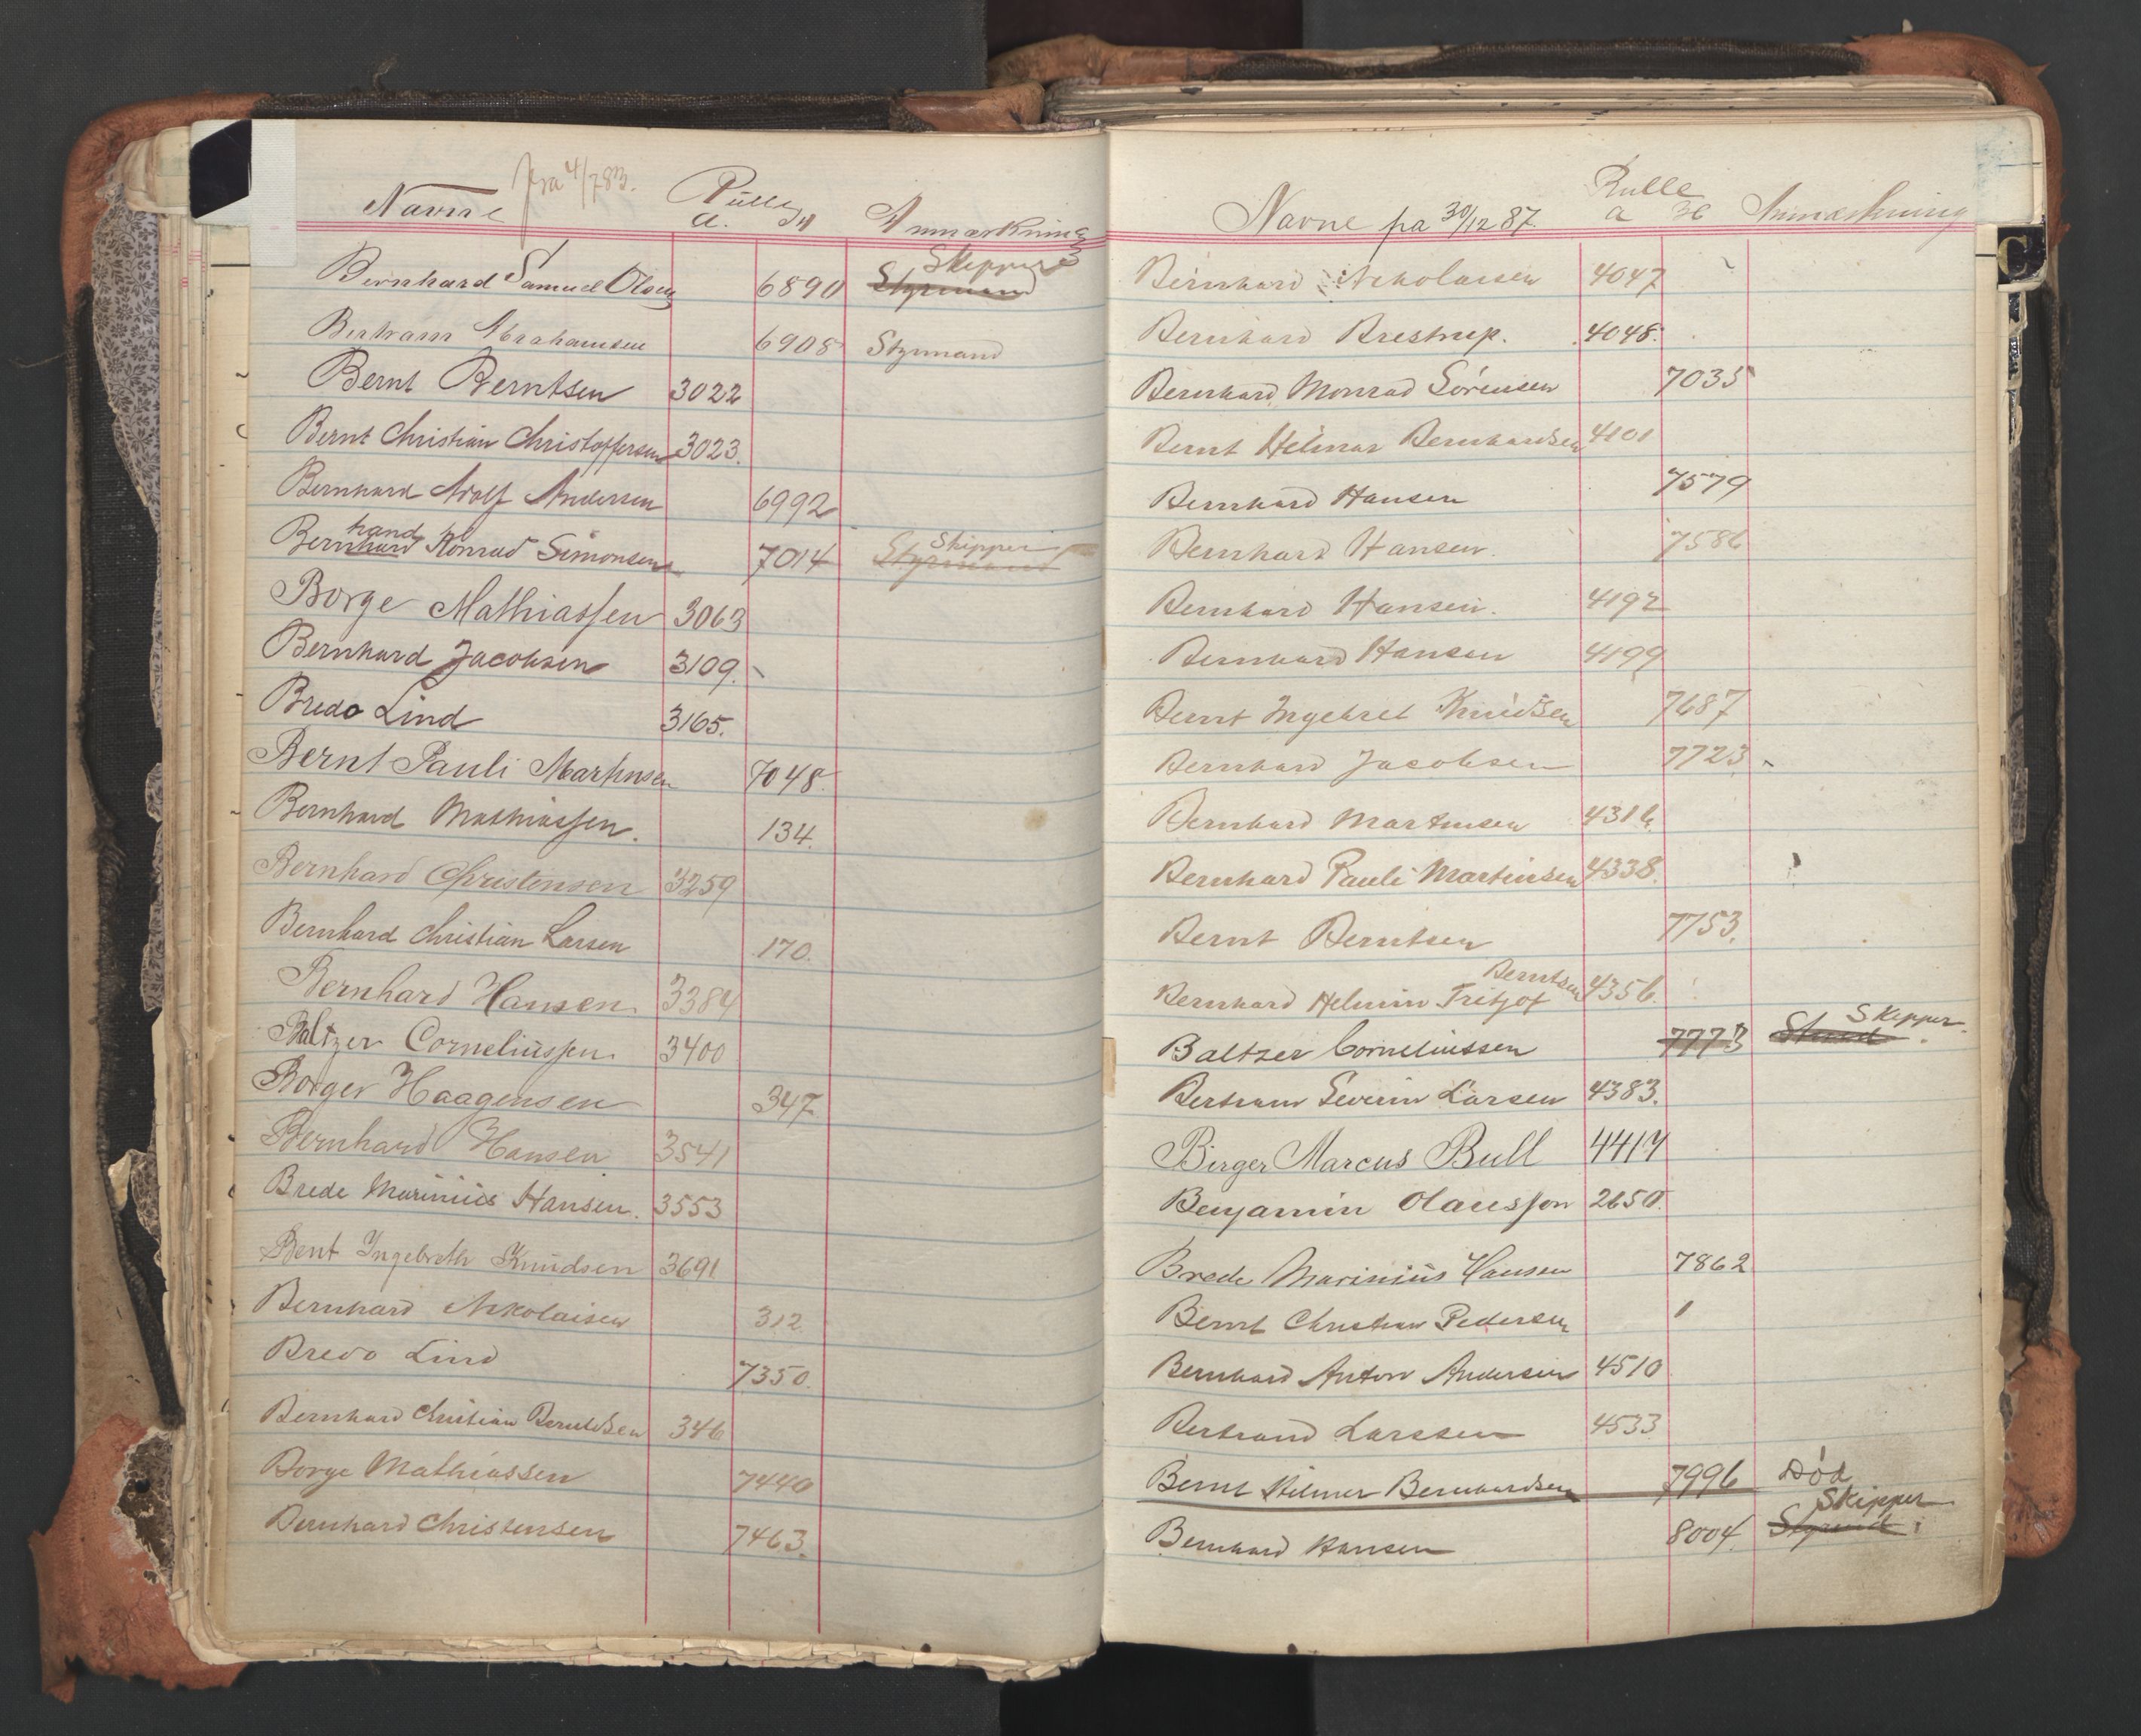 Navne fra 4/7 83. Rulle Anmærkning
a. H
Skipper
Bernhard Samuel Olsen 6890 Styrmand
Bertram Abrahamsen 6908 Styrmand
Bernt Berntsen 3022
Bernt Christian Christoffersen 3023.
Bernhard Adolf Andersen 6992
hand Skipper
Bernhard Konrad Simonsen 7014 Styrmand
Borge Mathiassen 3063
Bernhard Jacobsen 3109.
Bredo Lind 3165.
Bernt Pauli Martinsen 7048.
Bernhard Mathiassen. 134.
Bernhard Christensen 3259
Bernhard Christian Larsen 170.
Bernhard Hansen. 3384
Baltzer Corneliussen. 3400
Borger Haagensen 347
Bernhard Hansen 3541
Brede Marinius Hansen. 3553
Bent Ingebreth Knudsen 3691
Bernhard Nikolaisen 312
Bredo Lind 7350.
Bernhard Christian Berntsen 346
Borge Mathiassen 7440
Bernhard Christensen 7463.
Rulle
Navne fra 30/12 87. a H Anmærkning
Bernhard Nikolaisen 4047
Bernhard Brestrup. 4048.
Bernhard Monrad Sörensen 7035
Bernt Hilmar Bernhardsen 4101
Bernhard Hansen 7579
Bernhard Hansen. 7586
Bernhard Hansen. 4192
Bernhard Hansen 4199
Bernt Ingebret Knudsen 7687
Bernhard Jacobsen 7723
Bernhard Martinsen 4316.
Bernhard Pauli Martinsen 4338.
Bernt Berntsen 7753.
Berntsen
Bernhard Helmin Fritjof 4356.
Skipper.
Baltzer Corneliussen 7773 Stmd.
Bertram Severin Larsen 4383.
Birger Marcus Bull 4417
Benjamin Olausson 2650.
Brede Marinius Hansen 7862
Bernt Christian Pedersen 1
Bernhard Anton Andersen 4510
Bertrand Larssen 4533
Bernt Hilmer Bernhardsen 7996 Död
Skipper
Bernhard Hansen 8004. Styrmd.
C